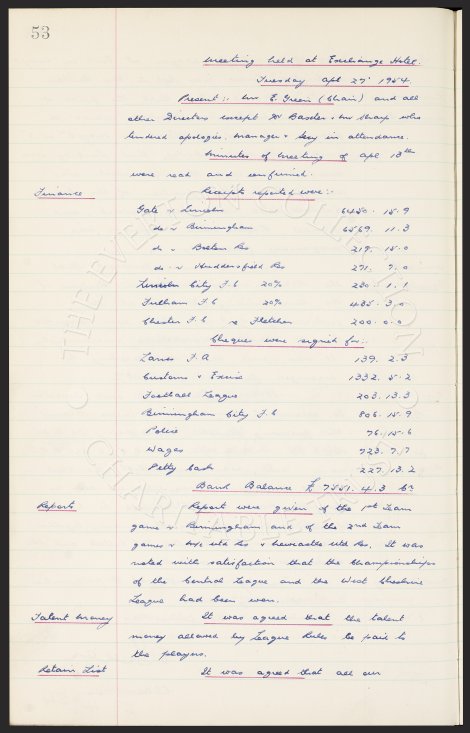 53
Meeting held at Exchange Hotel.
Tuesday Apl 27th 1954.
Present:- Mr E. Green (Chair) and all
other Directors except Dr Baxter & Mr Sharp who
tendered apologies. Manager & Secy in attendance.
Minutes of Meeting of Apl 13th
were read and confirmed.
Finance
Receipts reported were:-
Gate v Lincoln 6450. 15. 9
do v Birmingham 6569. 11. 3
do v Bolton Res 219. 15. 0
do v Huddersfield Res 271. 7. 0
Lincoln City F.C 20% 230. 1. 1
Fulham F.C 20% 435. 3. 0
Chester F.C Fletcher 200. 0. 0
Cheques were signed for:-
Lancs F.A 139. 2. 3
Customs & Excise 1332. 5. 2
Football League 203. 13. 3
Birmingham City F.C 806. 15. 9
Police 76. 15. 6
Wages 723. 7. 7
Petty Cash 227. 13. 2
Bank Balance £7551. 4. 3
Reports
Report were given of the 1st Team
game v Birmingham and of the 2nd Team
games v Utd Res v Newcastle Utd Res. It was
noted with satisfaction that the Championships
of the Central League and the West Cheshire
League had been won.
Talent Money
It was agreed that the talent
money allowed by League Rules be paid to
the players.
Retain List
It was agreed that all our
THE EVERTON COLLECTION